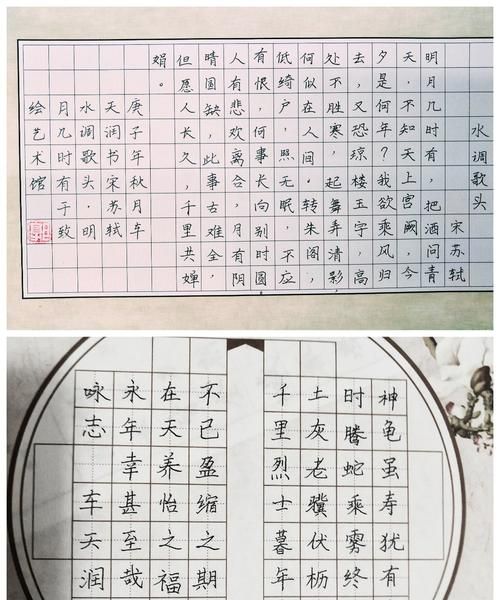 水调歌头
宋苏轼
明月几时有，把酒问青
天。不知天上宫阙，今
夕是何年？我欲乘风归
去，又恐琼楼玉宇，高
处不胜寒。起舞弄清影，
何似在人间。转朱阁，
低绮户，照无眠。不应
有恨，何事长向别时圆，
人有悲欢离合，月有阴
晴圆缺，此事古难全，
但愿人长久，千里共婵
娟。
庚子年秋月车
天润书宋苏轼
水调歌头·明
月几时有于致
绘艺术馆
神龟虽寿犹有
时腾蛇乘雾终
土灰老骥伏枥
千里烈士暮年
不已盈缩之期
在天养怡之福
永年幸甚至哉
咏志
车天润